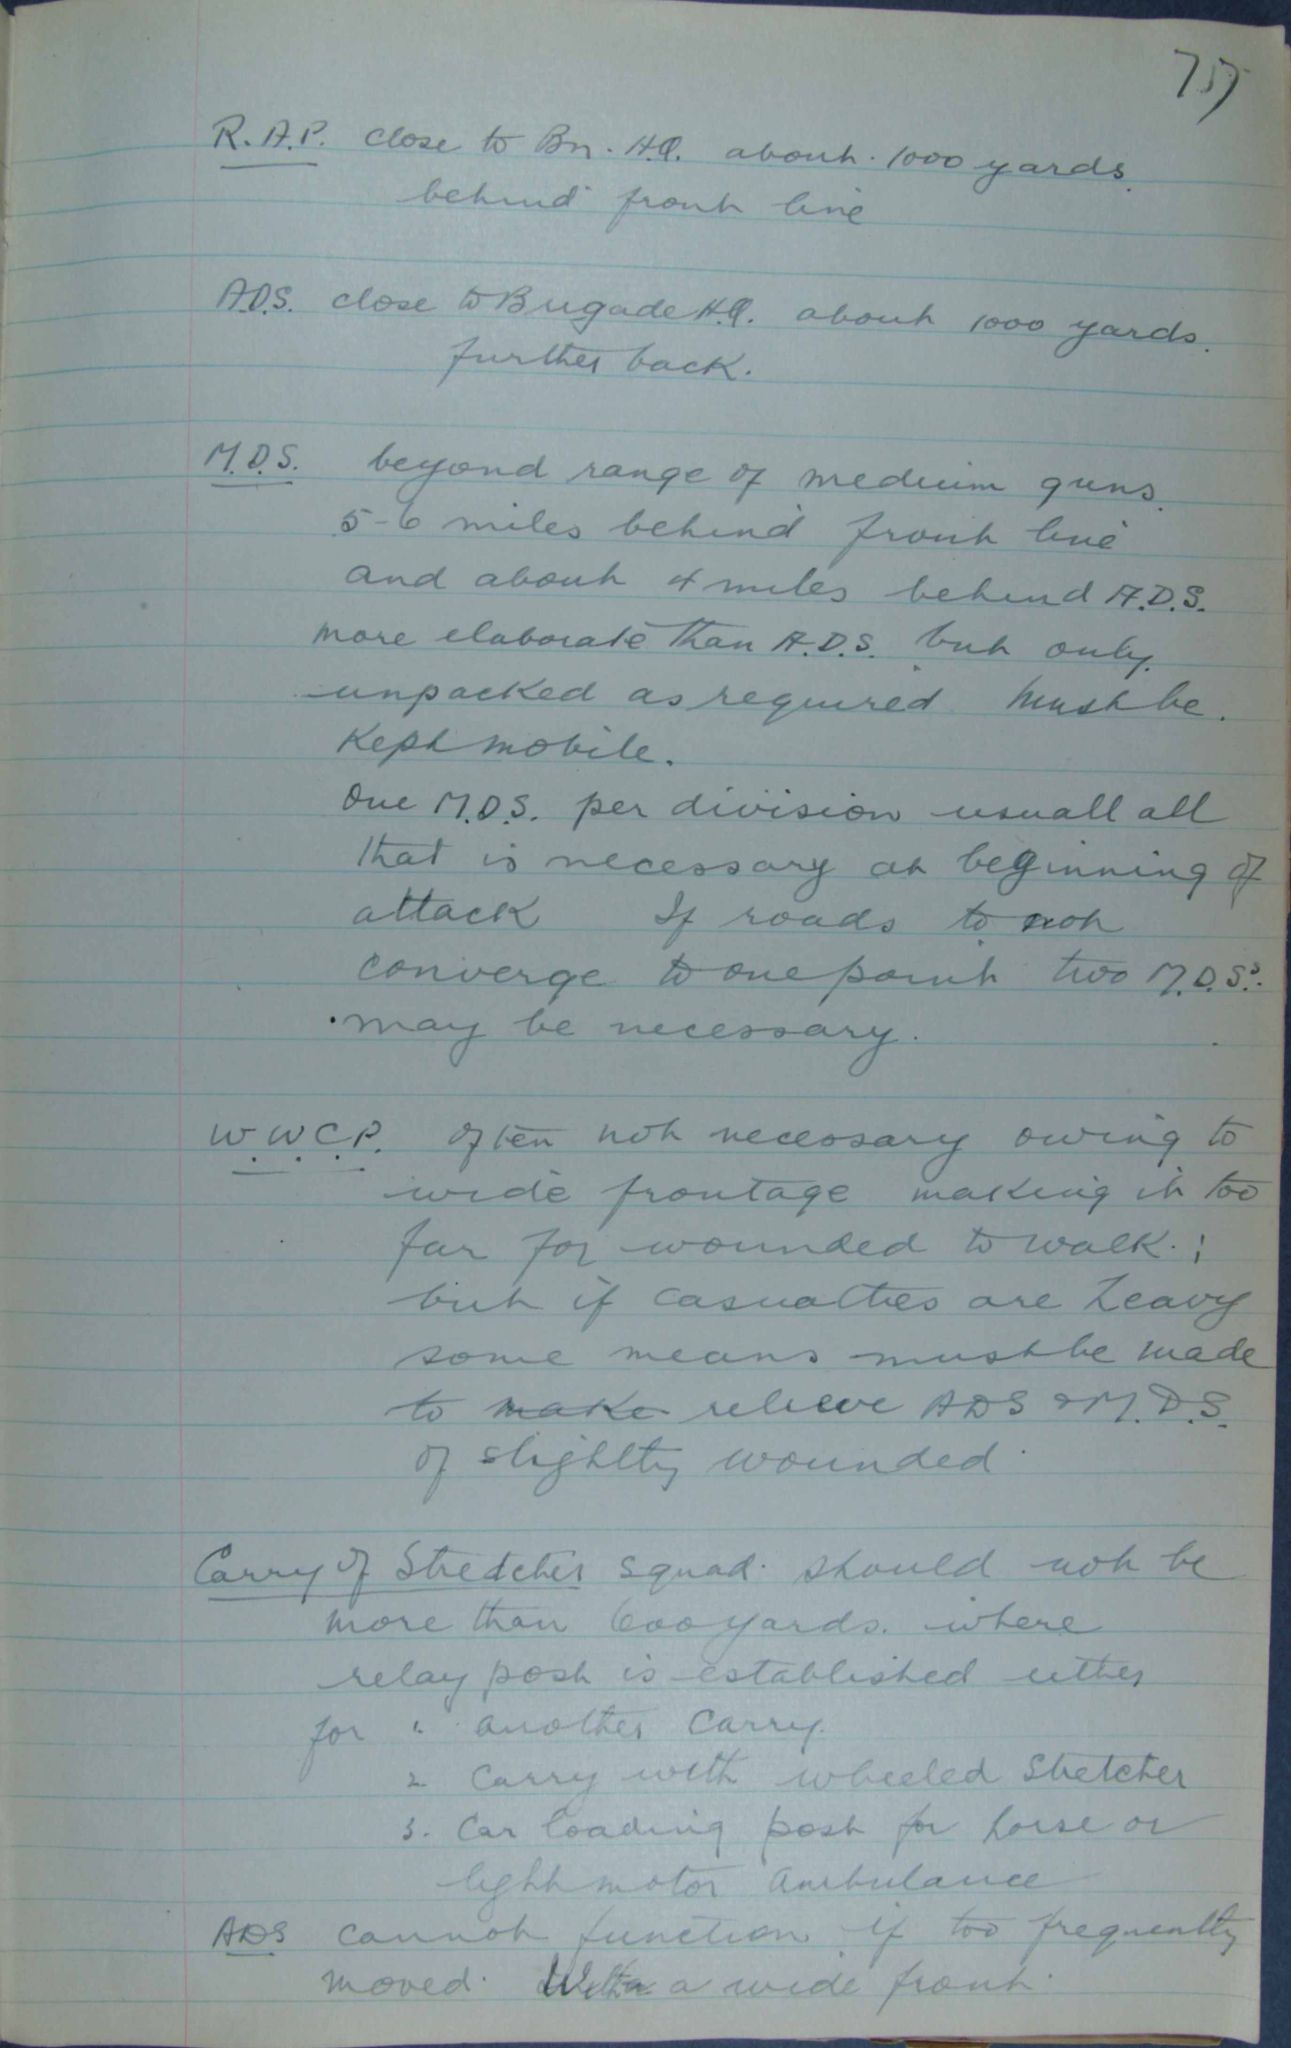 757
R.A.P. close to Bn. H.Q. about 1000 yards
behind front line
A.D.S. close to Brigade H.Q. about 1000 yards.
further back.
M.D.S. beyond range of medium guns
5-6 miles behind front line
and about 4 miles behind A.D.S.
more elaborate than A.D.S. but only
unpacked as required must be.
Kept mobile.
One M.D.S. per division usuall all
that is necessary at beginning of
attack If roads to not
converge to one point two M.D.S's.
may be necessary.
W.W.C.P. often not necessary owing to
wide frontage making it too
far for wounded to walk;
but if casualties are heavy
some means must be made
to make relieve ADS & M.D.S.
of slightly wounded
Carry of Stretcher squad should not be
more than 600 yards. where
relay post is established either
for 1. another carry.
2 Carry with wheeled Stretcher
3. Car loading post for horse or
light motor ambulance
ADS cannot function if too frequently
moved. With a wide front